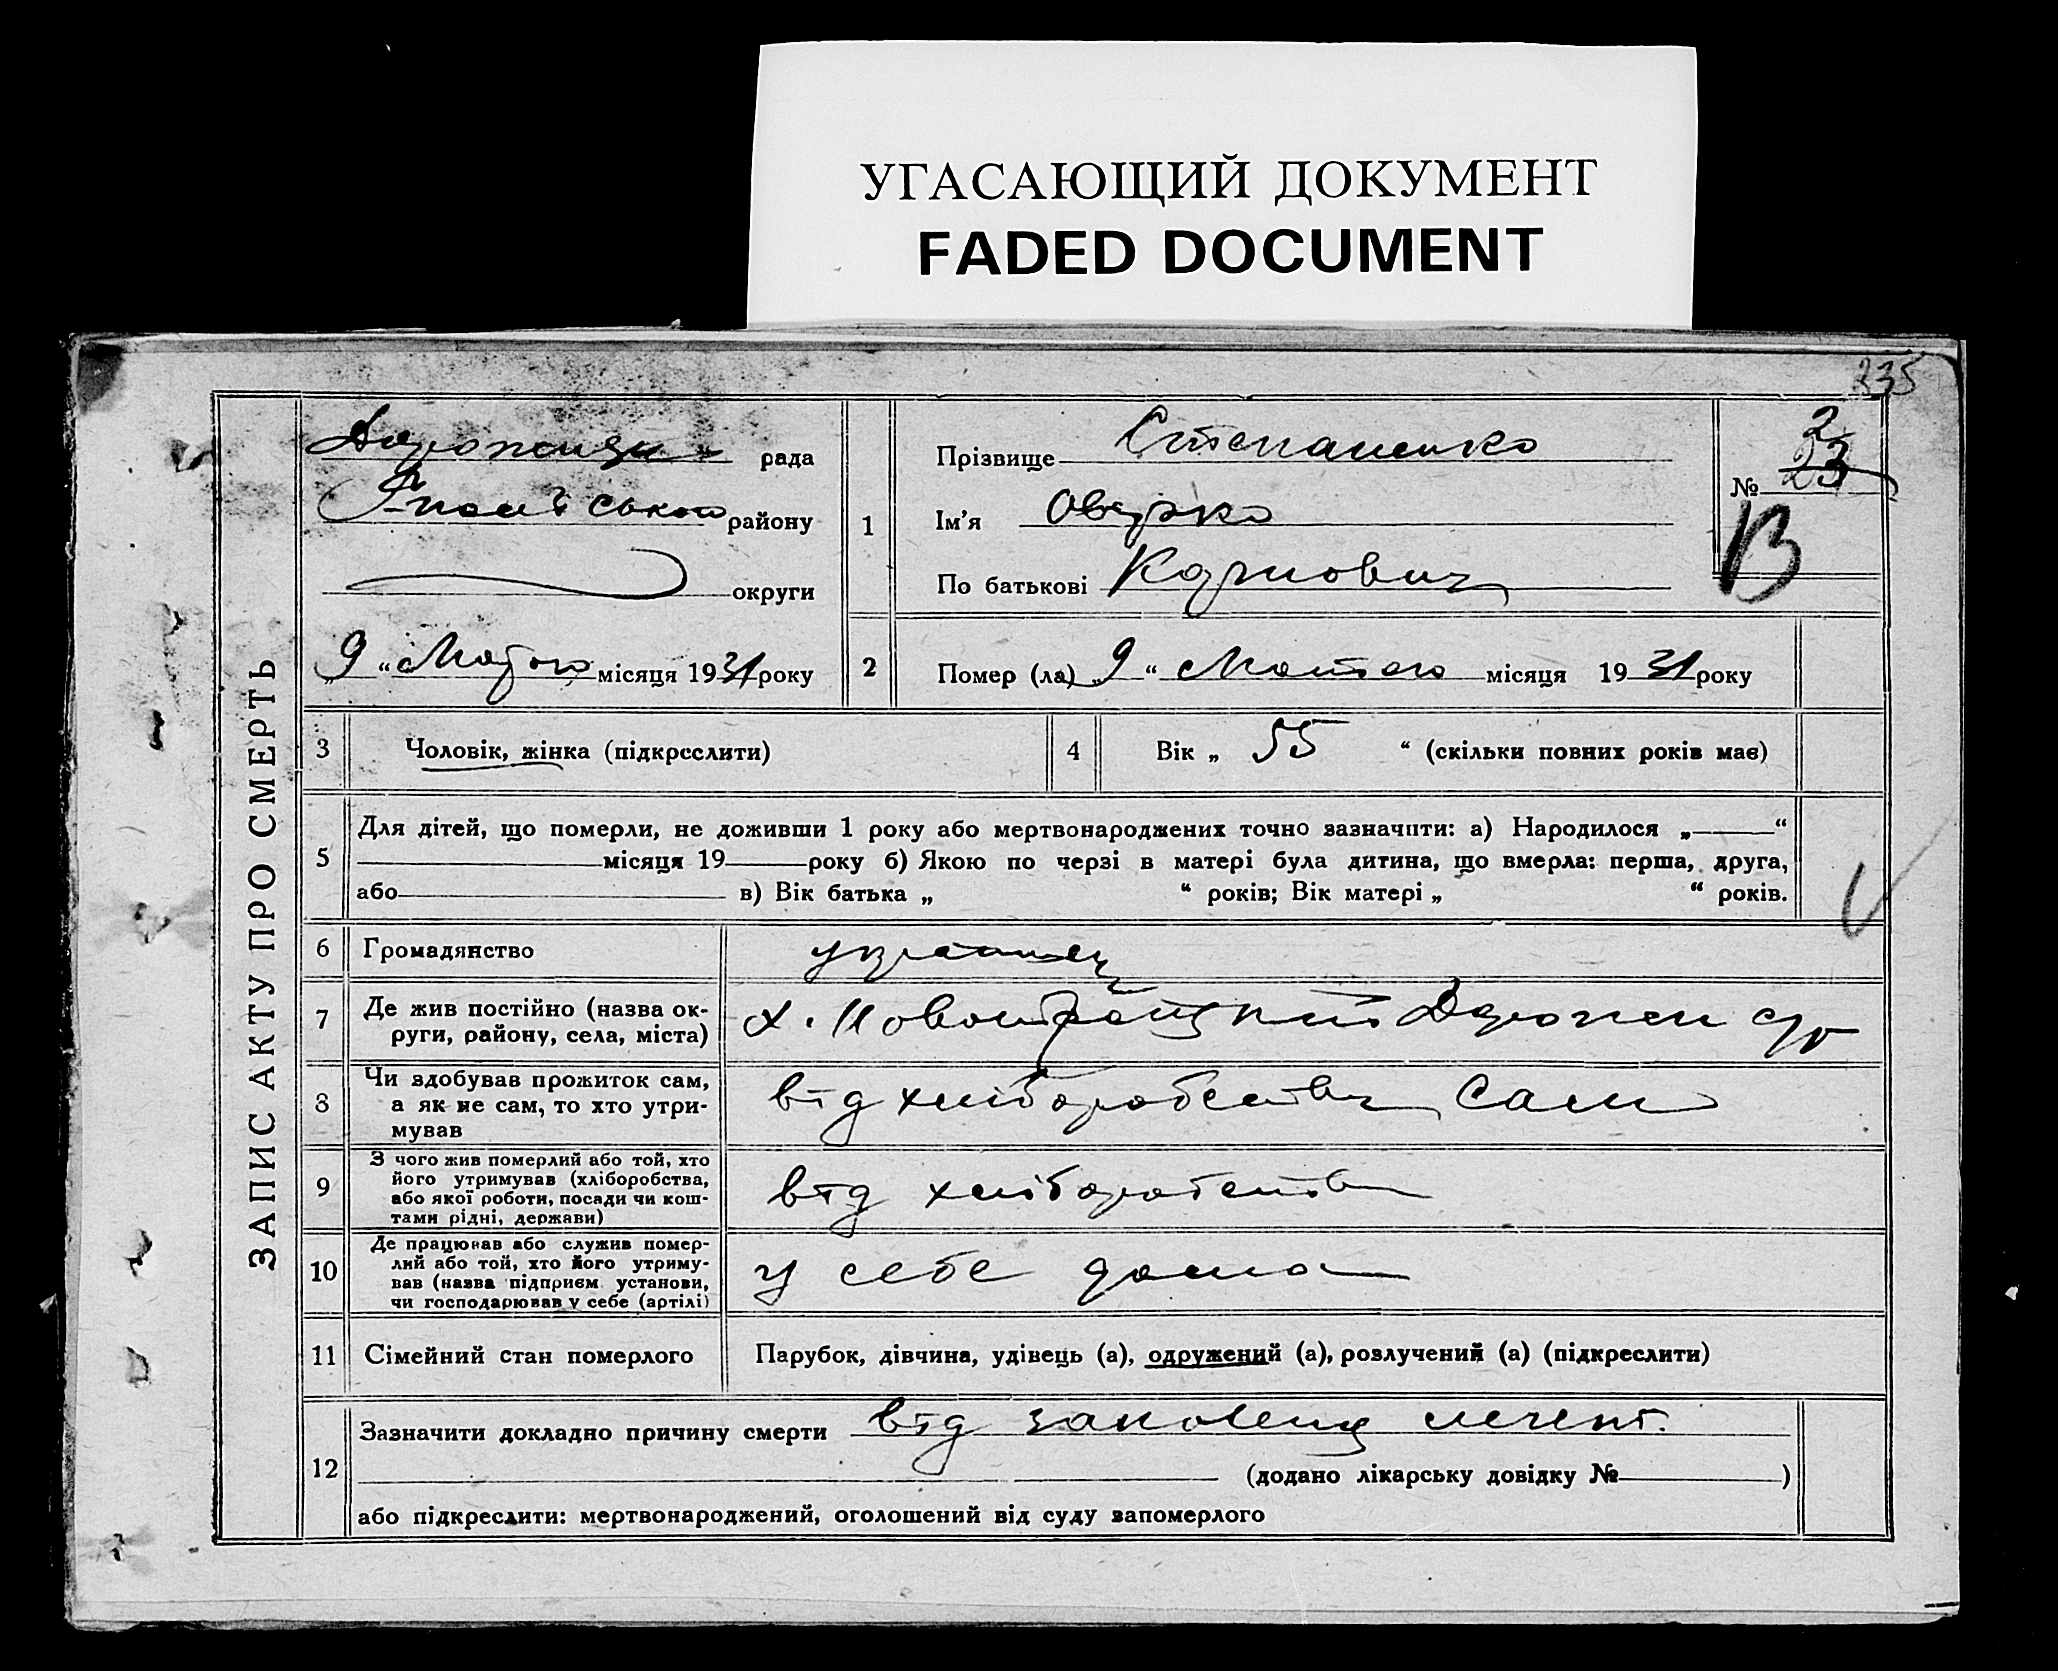 УГАСАЮЩИЙ ДОКУМЕНТ
FADED DOCUMENT
335
ЗАПИС АКТУ ПРО СМЕРТЬ
рада
району
округи
„9“ місяця 1931 року
1
Прізвище Степаненко
Ім'я Оверко
По батькові Карпович
2
№ 23
В
2
Помер (ла) „9“ Лютого місяця 1931 року
3
Чоловік, жінка (підкреслити)
4
Вік „ 55 “ (скільки повних років має)
5
Для дітей, що померли, не доживши 1 року або мертвонароджених точно зазначити: а) Народилося „ “
місяця 19 року б) Якою по черзі в матері була дитина, що вмерла: перша, друга,
або в) Вік батька „ “ років; Вік матері „ “ років.
6
Громадянство
українец
7
Де жив постійно (назва ок-
руги, району, села, міста)
х.
8
Чи здобував прожиток сам,
а як не сам, то хто утри-
мував
від хліборобства сам
9
З чого жив померлий або той, хто
його утримував (хліборобства,
або якої роботи, посади чи кош-
тами рідні, держави)
від хліборобства
10
Де працював або служив помер-
лий або той, хто його утриму-
вав (назва підприєм. установи,
чи господарював у себе (артілі)
у себе дома
11
Сімейний стан померлого
Парубок, дівчина, удівець (а), одружений (а), розлучений (а) (підкреслити)
12
Зазначити докладно причину смерти від
(додано лікарську довідку № )
або підкреслити: мертвонароджений, оголошений від суду запомерлого